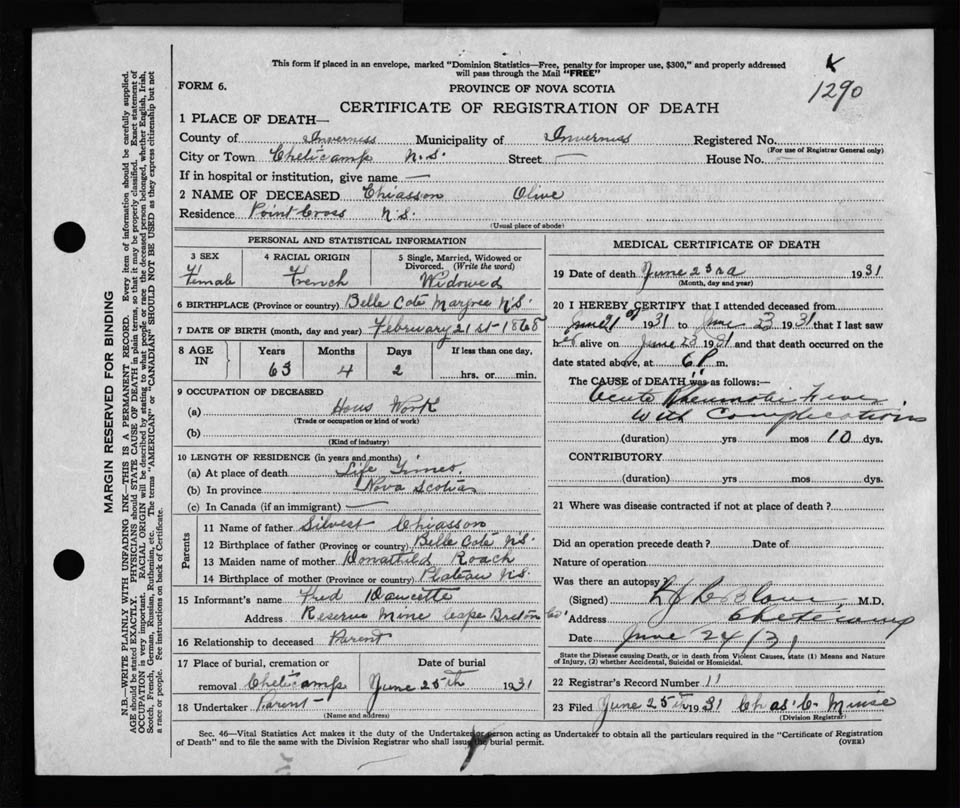 This form if placed in an envelope, marked "Dominion Statistics—Free, penalty for improper use, $300," and properly addressed
will pass through the Mail "FREE"
1290
FORM 6.
PROVINCE OF NOVA SCOTIA
CERTIFICATE OF REGISTRATION OF DEATH
1 PLACE OF DEATH—
County of Inverness Municipality of Inverness Registered No.
(For use of Registrar General only)
City or Town Cheticamp N.S. Street — House No. —
If in hospital or institution, give name —
2 NAME OF DECEASED Chiasson Olive
Residence Point Cross N.S.
(Usual place of abode)
PERSONAL AND STATISTICAL INFORMATION
3 SEX 4 RACIAL ORIGIN 5 Single, Married, Widowed or Divorced. (Write the word)
Female French Widowed
6 BIRTHPLACE (Province or country) Belle Coté Margree N.S.
7 DATE OF BIRTH (month, day and year) February 21st - 1868
8 AGE IN Years Months Days If less than one day.
63 4 2 hrs. or min.
9 OCCUPATION OF DECEASED
(a) Hous Work
(Trade or occupation or kind of work)
(b)
(Kind of industry)
10 LENGTH OF RESIDENCE (in years and months)
(a) At place of death Life Times.
(b) In province Nova Scotia
(c) In Canada (if an immigrant) —
Parents
11 Name of father Silvest Chiasson
12 Birthplace of father (Province or country) Belle Coté N.S.
13 Maiden name of mother Roach
14 Birthplace of mother (Province or country) Plateau N.S.
15 Informant's name Fred Doucette
Address Reserve Mine Cape Breton Co'
16 Relationship to deceased Parent
17 Place of burial, cremation or removal Cheticamp Date of burial June 25th 1931
18 Undertaker Parent -
(Name and address)
MEDICAL CERTIFICATE OF DEATH
19 Date of death June 23rd 1931
(Month, day and year)
20 I HEREBY CERTIFY that I attended deceased from
June 21st 1931 to June 23 1931 that I last saw
her alive on June 23 1931 and that death occurred on the
date stated above, at 6 P m.
The CAUSE of DEATH was as follows:—
Acute Rheumatic Fever
with Complications
(duration) yrs mos 10 dys.
CONTRIBUTORY
(duration) yrs. mos. dys.
21 Where was disease contracted if not at place of death?
Did an operation precede death? Date of
Nature of operation
Was there an autopsy
(Signed) M.D.
Address Cheticamp
Date June 24/31
State the Disease causing Death, or in death from Violent Causes, state (1) Means and Nature
of Injury, (2) whether Accidental, Suicidal or Homicidal.
22 Registrar's Record Number 11
23 Filed June 25th 1931 Chas' C. Muise
(Division Registrar)
Sec. 46—Vital Statistics Act makes it the duty of the Undertaker or person acting as Undertaker to obtain all the particulars required in the "Certificate of Registration
of Death" and to file the same with the Division Registrar who shall issue the burial permit. (OVER)
MARGIN RESERVED FOR BINDING
N.B.—WRITE PLAINLY WITH UNFADING INK—THIS IS A PERMANENT RECORD. Every item of information should be carefully supplied.
AGE should be stated EXACTLY. PHYSICIANS should STATE CAUSE OF DEATH in plain terms, so that it may be properly classified. Exact statement of
OCCUPATION is very important. RACIAL ORIGIN will be described by stating to what people or race the deceased person belonged, whether English, Irish,
Scotch, French, German, Russian, Ruthenian, etc. The terms "AMERICAN" or "CANADIAN" SHOULD NOT BE USED as they express citizenship but not
a race or people. Fee instructions on back of Certificate.